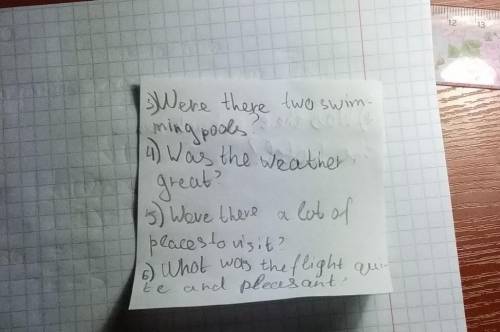 3) Were there two swim-
ming pools?
4) Was the weather
great?
5) Were there a lot of
places to visit?
6) What was the flight qui-
te and pleasant.
12 13